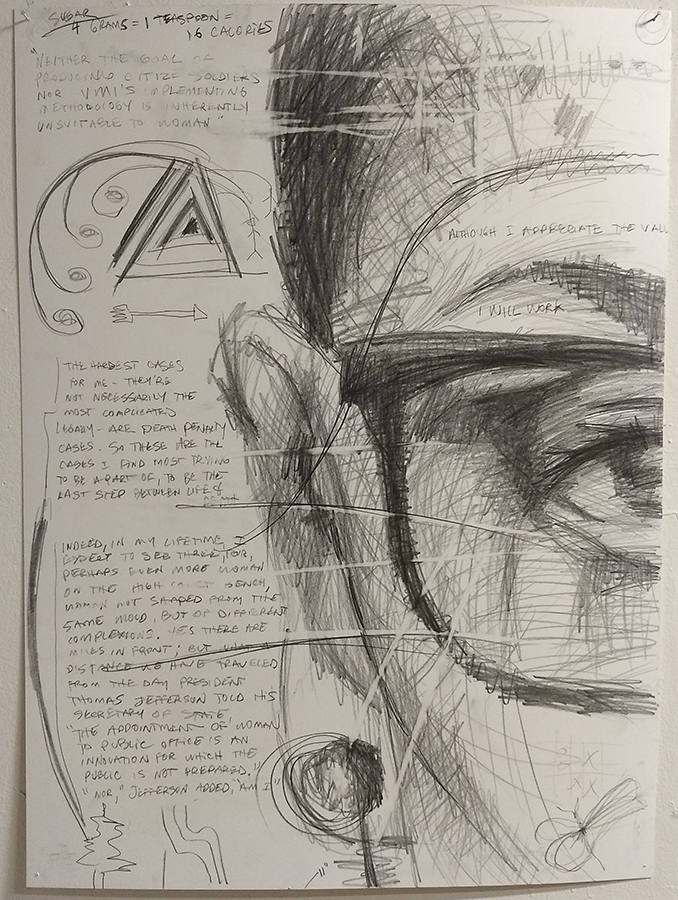 SUGAR
4 GRAMS = 1 TEASPOON =
16 CALORIES
"NEITHER THE GOAL OF
PRODUCING CITIZE SOLDIERS
NOR VMI'S IMPLEMENTING
METHODOLOGY IS INHERENTLY
UNSUITABLE TO WOMAN"
ALTHOUGH I APPRECIATE THE VAL
I WILL WORK
THE HARDEST CASES
FOR ME - THEY'RE
NOT NECESSARILY THE
MOST COMPLICATED
LEGALLY - ARE DEATH PENALTY
CASES. SO THESE ARE THE
CASES I FIND MOST TRYING
TO BE A PART OF, TO BE THE
LAST STEP BETWEEN LIFE &
INDEED, IN MY LIFETIME, I
EXPECT TO SEE THREE, FOR,
PERHAPS EVEN MORE WOMAN
ON THE HIGH COURT BENCH,
WOMAN NOT SHAPED FROM THE
SAME MOLD, BUT OF DIFFERENT
COMPLEXIONS. YES THERE ARE
MILES IN FRONT; BUT WHAT
DISTANCE WE HAVE TRAVELED
FROM THE DAY PRESIDENT
THOMAS JEFFERSON TOLD HIS
SECRETARY OF STATE
"THE APPOINTMENT OF WOMAN
TO PUBLIC OFFICE IS AN
INNOVATION FOR WHICH THE
PUBLIC IS NOT PREPARED."
"NOR," JEFFERSON ADDED, "AM I"